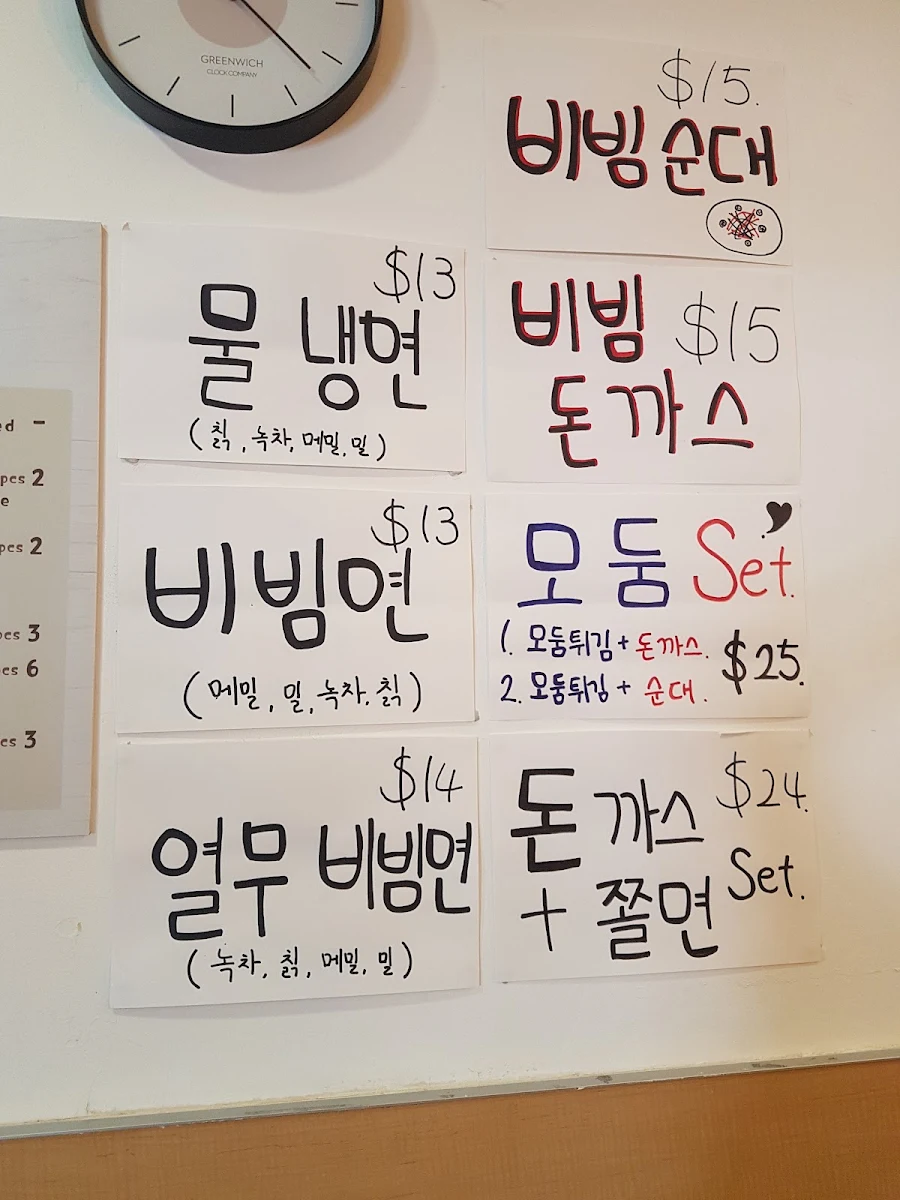 GREENWICH
CLOCK COMPANY
ed -
pcs 2
e
pcs 2
cs 3
cs 6
cs 3
$13
물 냉면
(칡, 녹차, 메밀, 밀)
$13
비빔면
(메밀, 밀, 녹차, 칡)
$14
열무 비빔면
(녹차, 칡, 메밀, 밀)
$15.
비빔 순대
비빔 $15
돈까스
모둠 Set.
1. 모둠튀김 + 돈까스.
2. 모둠튀김 + 순대.
$25.
돈까스 $24.
+ 쫄면 Set.